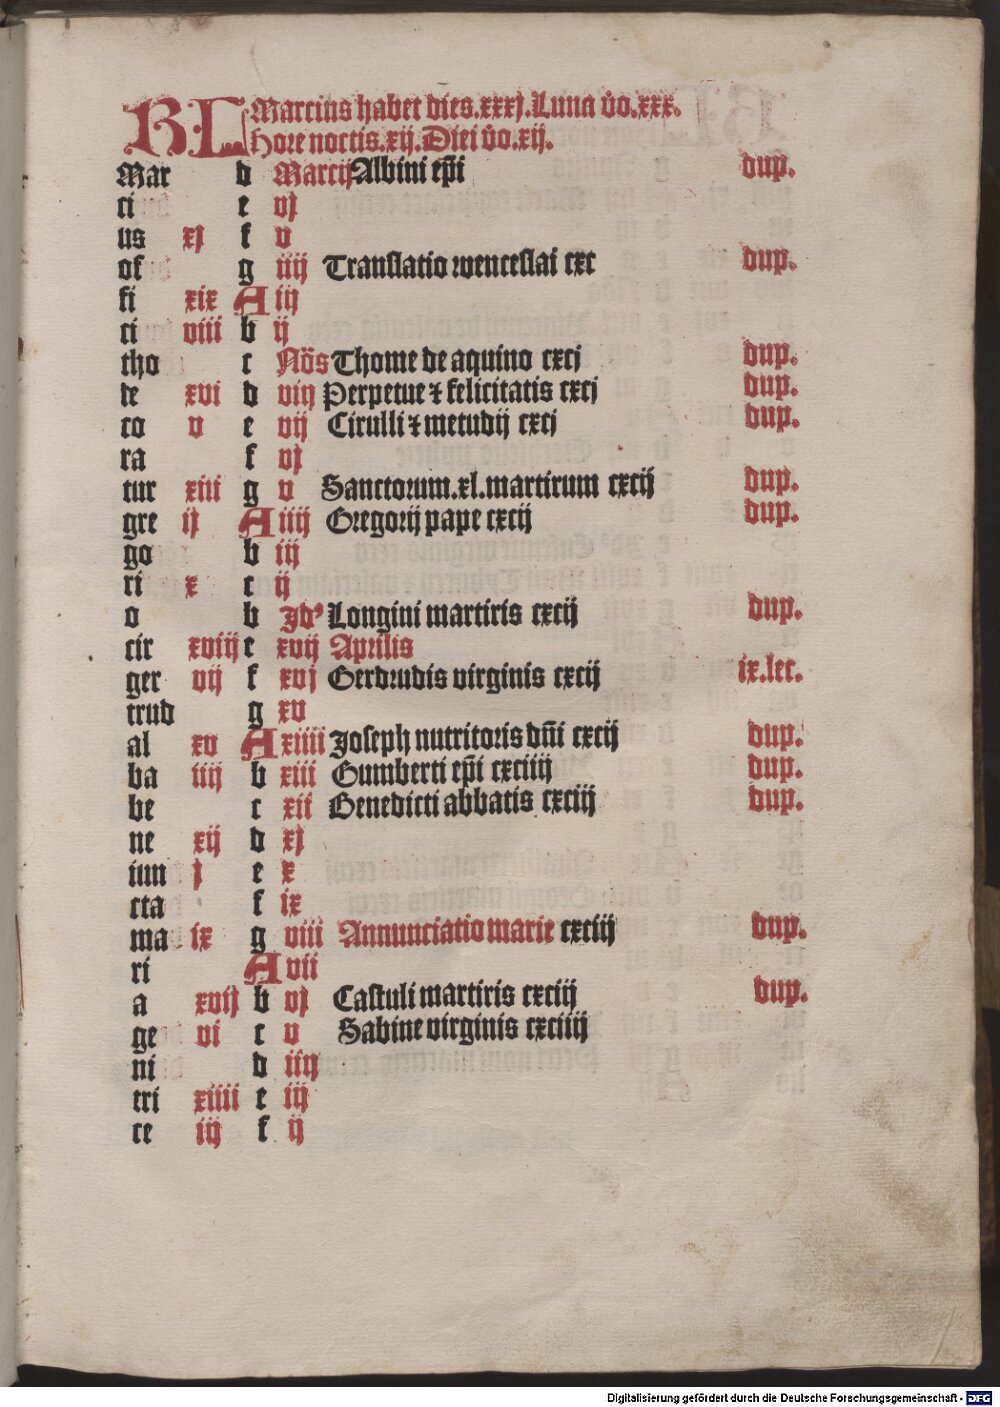 KL Marcius habet dies.xxxj.Luna v̊o.xxx.
Hore noctis.xij.Diei v̊o.xij.
Mar d Marcij Albini ep̄i dup.
ci e vj
us xj f v
of g iiij Translatio wenceslai cxc dup.
fi xix A iij
ci viii b ij
tho c Nōs Thome de aquino cxcj dup.
de xvi d viij Perpetue ⁊ felicitatis cxcj dup.
co v e vij Cirulli ⁊ metudij cxcj dup.
ra f vj
tur xiii g v Sanctorum.xl.martirum cxcij dup.
gre ij A iiij Gregorij pape cxcij dup.
go b iij
ri x c ij
o b Jdꝰ Longini martiris cxcij dup.
cir xviij e xvij Aprilis
ger vij f xvj Gerdrudis virginis cxcij ix.lec.
trud g xv
al xv A xiiii Joseph nutritoris dn̄i cxcij dup.
ba iiij b xiii Gumberti ep̄i cxciiij dup.
be c xii Benedicti abbatis cxciij dup.
ne xij d xj
iun j e x
cta f ix
ma ix g viii Annunciatio marie cxciij dup.
ri A vii
a xvij b vj Castuli martiris cxciij dup.
ge vi c v Sabine virginis cxciiij
ni d iiij
tri xiiii e iij
ce iij f ij
Digitalisierung gefördert durch die Deutsche Forschungsgemeinschaft - DFG